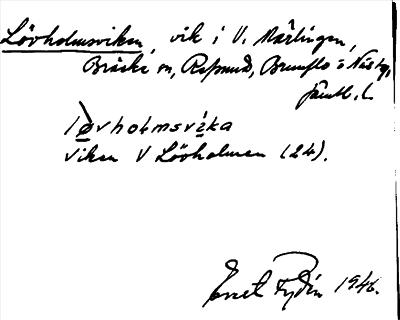 Lövholmsviken, vik i V. Märlingen,
Bräcke sn, Refsund, Brunflo o Näs tg,
Jämtl. l.
lø̀vholmsvi̇ka
viken V Lövholmen (24).
Ernst Frydén 1946.